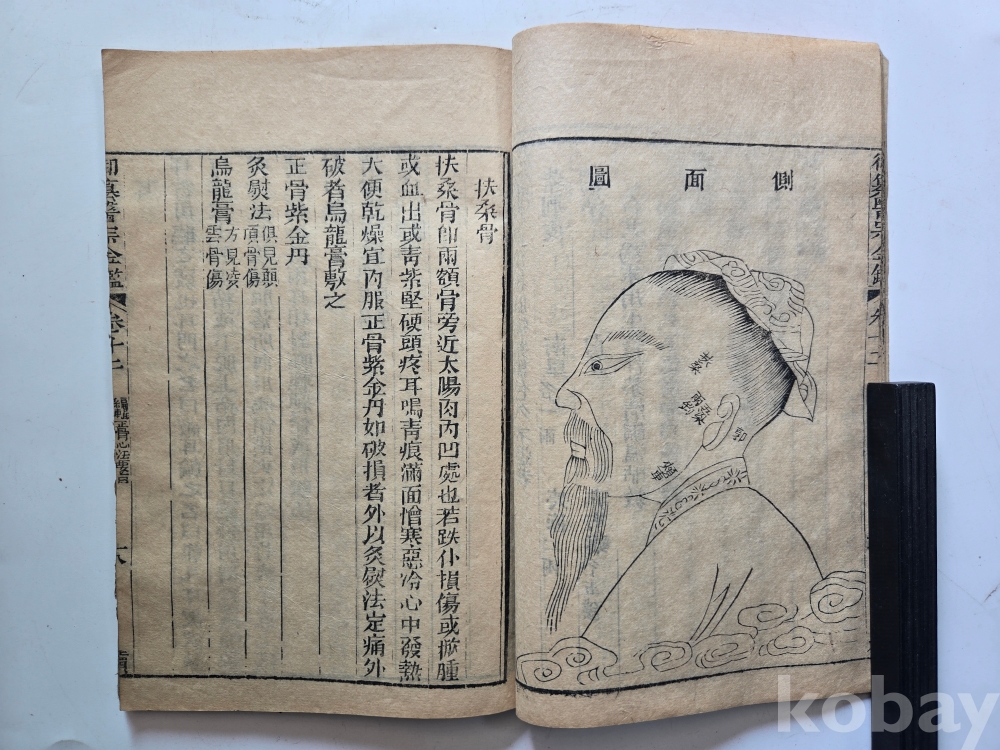 側面圖
扶桑
耳
扶桑骨
扶桑骨即兩額骨旁近太陽肉內凹處也若跌仆損傷或掀腫
或血出或青紫堅硬頭疼耳鳴青痕滿面憎寒惡冷心中發熱
大便乾燥宜內服正骨紫金丹如破損者外以灸熨法定痛外
破者烏龍膏敷之
正骨紫金丹
灸熨法俱見顛
頂骨傷
烏龍膏方見凌
雲骨傷
御纂醫宗金鑑
卷
kobay